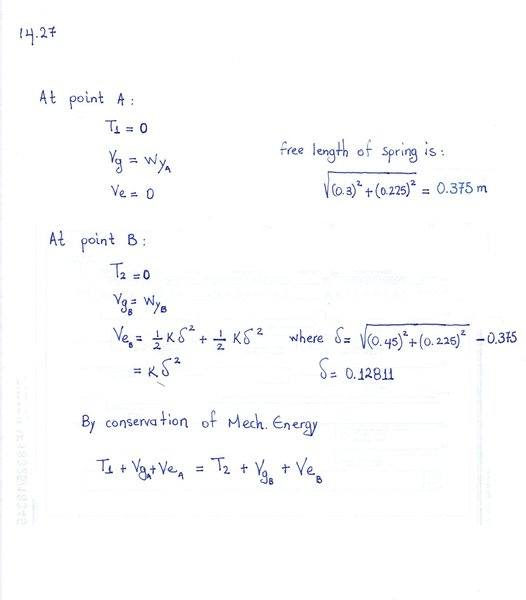 14.27
At point A:
T₁ = 0
Vg = WyA
Ve = 0
free length of spring is:
√(0.3)² + (0.225)² = 0.375 m
At point B:
T₂ = 0
VgB = WyB
VeB = ½ Kδ² + ½ Kδ² where δ = √(0.45)² + (0.225)² - 0.375
= Kδ² δ = 0.12811
By conservation of Mech. Energy
T₁ + VgA + VeA = T₂ + VgB + VeB